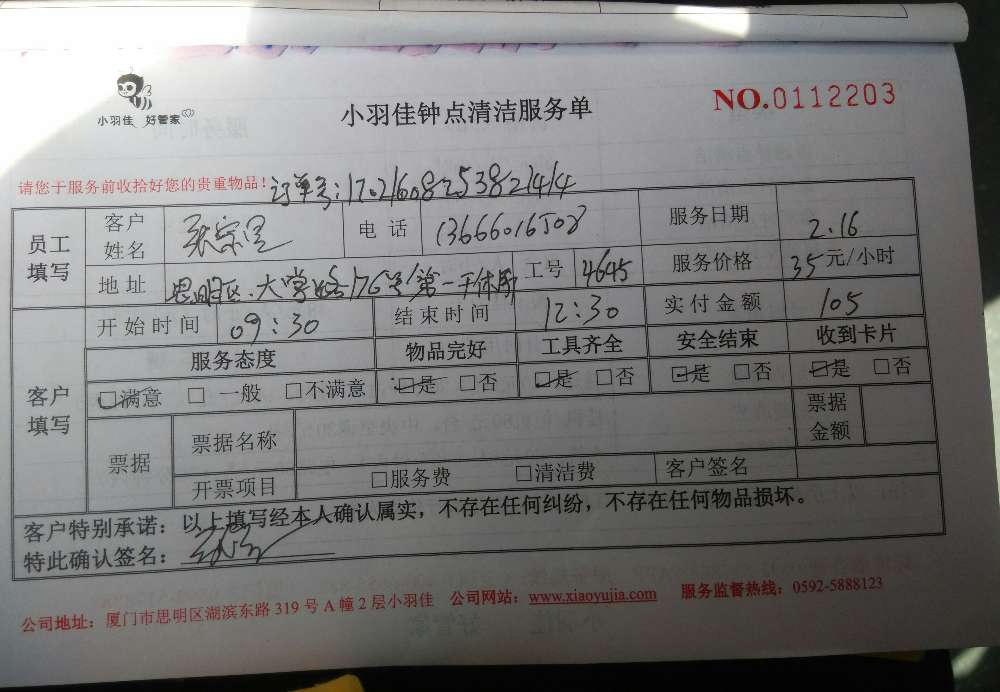 小羽佳 好管家
小羽佳钟点清洁服务单
NO.0112203
请您于服务前收拾好您的贵重物品！订单号：17021608253821414
员工填写
客户姓名 电话 13666016508 服务日期 2.16
地址 思明区.大学路176号 工号 4645 服务价格 35元/小时
客户填写
开始时间 09:30 结束时间 12:30 实付金额 105
服务态度 物品完好 工具齐全 安全结束 收到卡片
□满意 □一般 □不满意 □是 □否 □是 □否 □是 □否 □是 □否
票据 票据名称 票据金额
开票项目 □服务费 □清洁费 客户签名
客户特别承诺：以上填写经本人确认属实，不存在任何纠纷，不存在任何物品损坏。
特此确认签名：
公司地址：厦门市思明区湖滨东路319号A幢2层小羽佳 公司网站：www.xiaoyujia.com 服务监督热线：0592-5888123